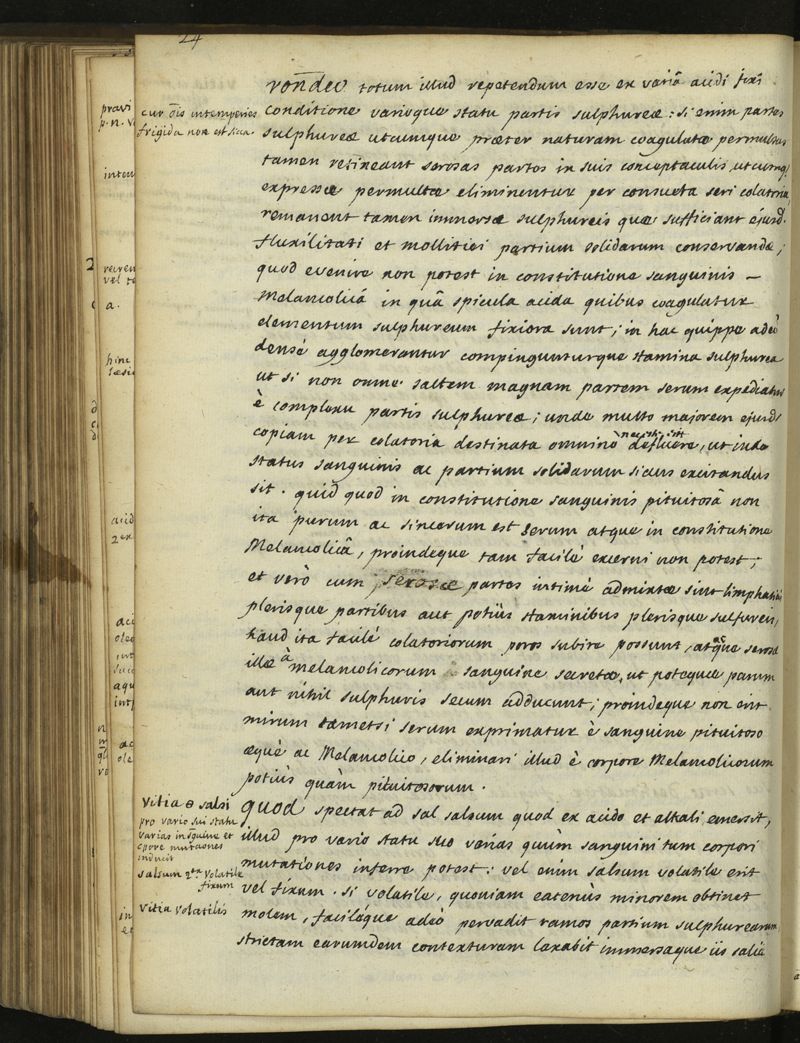 24
rondeo totum illud repetendum esse ex variâ acidi fixi
cur ōis intemperies
frigida non est sicca
conditione varioque statu partis sulphureæ: si enim partes
sulphureæ utcumque præter naturam coagulatæ permultas
tamen retineant serosas partes in suis conceptaculis, ut cumq
expressæ permultæ eliminentur per consueta seri colatoria,
remanent tamen immersæ sulphureis quæ sufficiant ejusd.
fluxilitati et mollitiei partium solidarum conservandæ;
quod evenire non potest in constitutione sanguinis —
Melancolicâ in quâ spicula acida quibus coagulatur
elementum sulphureum fixiora sunt; in hac quippe adeò
densè agglomerantur compingunturque stamina sulphurea
ut si non omne. saltem magnam partem serum expediatur
è complexu partis sulphureæ; unde multo majorem ejusd
copiam per colatoria destinata omnino necesse est defluere, ut inde
status sanguinis ac partium solidarum siccus excitandus
sit. quid quod in constitutione sanguinis pituitosâ non
ita purum ac sincerum est serum atque in constitutione
Melancolicâ, proindeque tam facilè excerni non potest;
et verò cum serosæ partes intimè admixtæ sint limphatici
plerisque partibus aut potiùs staminibus plerisque sulfureis,
haud ita facilè colatoriorum poros subire possunt, atque serosæ
illæ à melancolicorum sanguine secretæ, ut poteque parum
aut nihil sulphuris secum adducunt; proindeque non erit
mirum tametsi serum exprimatur è sanguine pituitoso
æquè ac Melancolico, eliminari illud è corpore Melancolicorum
potiùs quàm pituitosorum.
Vitia salsi
pro vario sui statu
varias in sguine et
cpore mutaones
inducit
quod spectat ad sal salsum quod ex acido et alkali emersit,
illud pro vario statu suo varias quum sanguini tum corpori
mutationes inferre potest: vel enim salsum volatile erit
salsum 2ex volatile
fixum
vel fixum. si volatile, quoniam eatenùs minorem obtinet
vitia volatilis
molem, facilèque adeò pervadit ramos partium sulphurearum
strictam earumdem contexturam laxabit immersaque iis salia